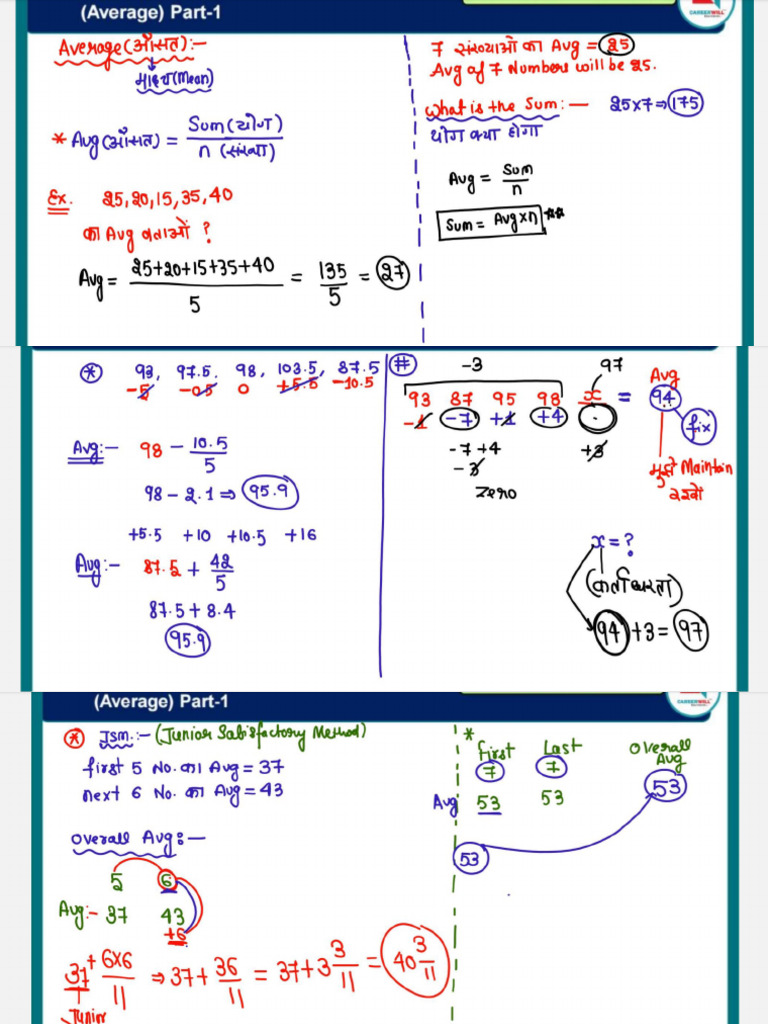 (Average) Part-1
CAREERWILL
Average (औसत):-
माध्य (Mean)
* Avg (औसत) = Sum (योग) / n (संख्या)
Ex. 25, 20, 15, 35, 40
का Avg बताओं ?
Avg = 25+20+15+35+40 / 5 = 135 / 5 = 27
7 संख्याओं का Avg = 25
Avg of 7 Numbers will be 25.
What is the Sum:- 25x7 ⇒ 175
योग क्या होगा
Avg = Sum / n
Sum = Avg x n **
* 93, 97.5, 98, 103.5, 87.5
-5 -0.5 0 +5.5 -10.5
Avg:- 98 - 10.5 / 5
98 - 2.1 ⇒ 95.9
+5.5 +10 +10.5 +16
Avg:- 87.5 + 42 / 5
87.5 + 8.4
95.9
# -3 97
Avg
93 87 95 98 x = 94
-1 -7 +1 +4 . fix
-7+4 +3
-3
Zero
मुझे Maintain
रखो
x = ?
94 + 3 = 97
(Average) Part-1
CAREERWILL
* JSM:- (Junior Satisfactory Method)
first 5 No. का Avg = 37
next 6 No. का Avg = 43
Overall Avg:-
5 6
Avg:- 37 43
+6
37 + 6x6 / 11 ⇒ 37 + 36 / 11 = 37 + 3 3/11 = 40 3/11
Junior
* First Last Overall
Avg
7 7 53
Avg 53 53
53